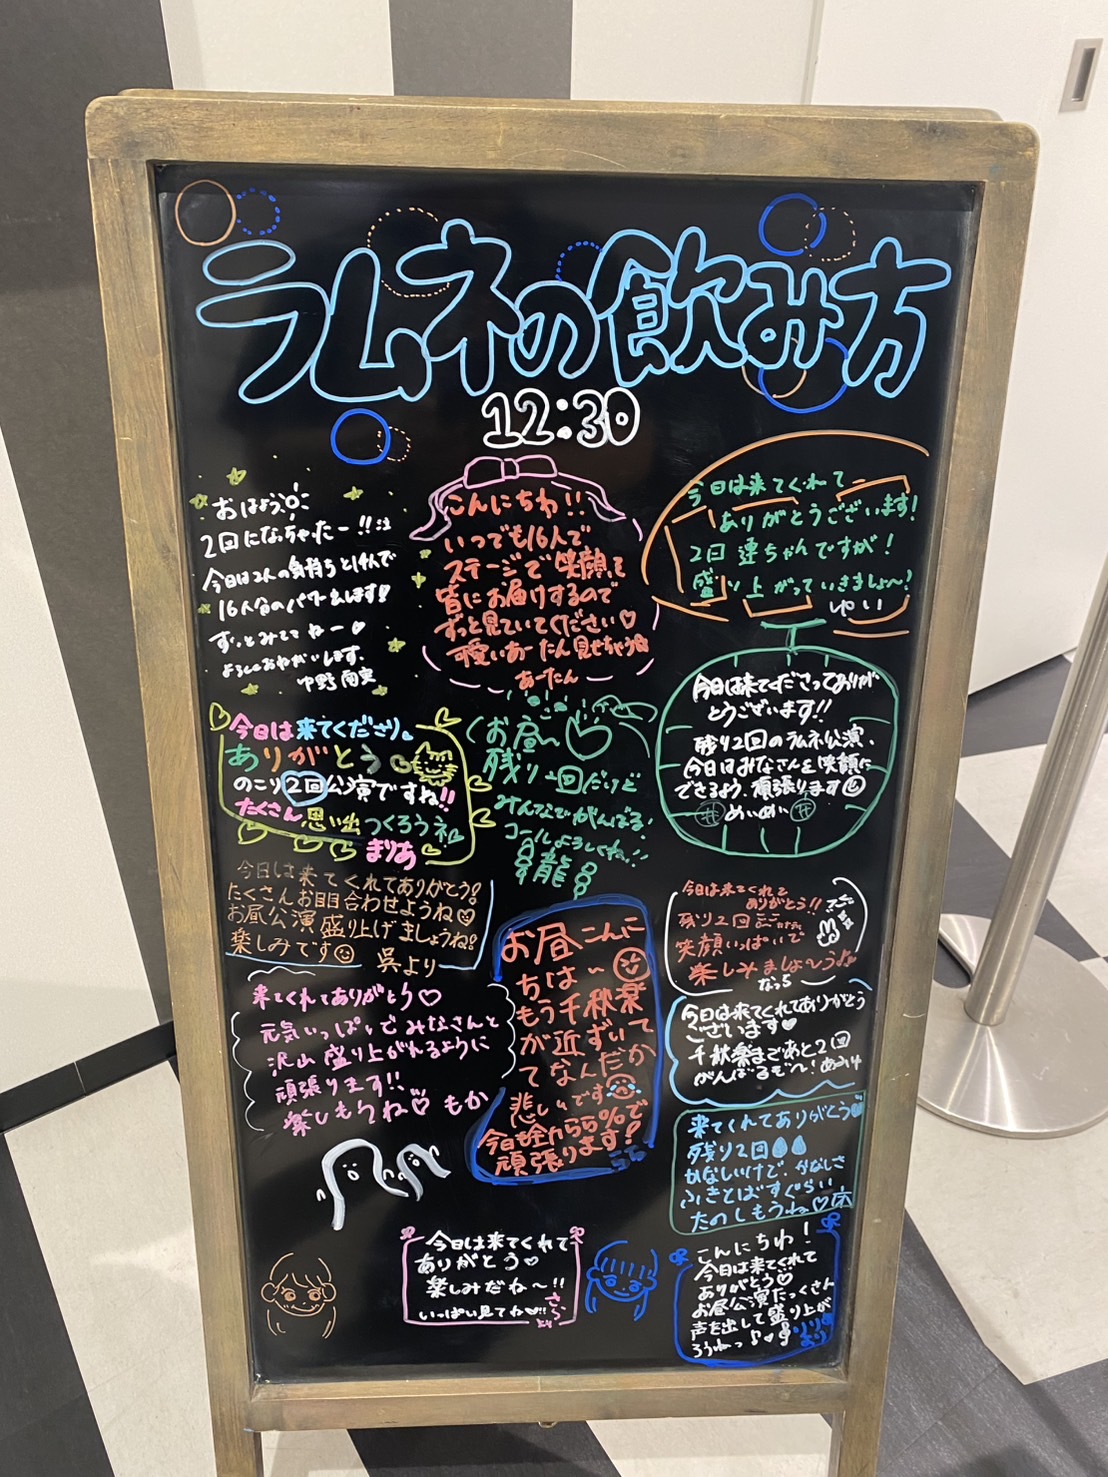 ラムネの飲み方
12:30
おはよう
2回になっちゃたー!!注
今日は2人の気持ちと14人で
16人分のパワー出します!!
ずっとみててねー♡
よろしくおねがいします。
中野
こんにちわ!!
いつでも16人で
ステージで笑顔を
皆にお届けするので
ずっと見ていてください♡
可愛いあーたん見せちゃう
あーたん
今日は来てくれて
ありがとうございます!
2回連ちゃんですが!
盛り上がっていきましょ〜?
ゆい
今日は来てくださってありが
とうございます!!
残り2回のラムネ公演、
今日はみなさんを笑顔に
できるよう、頑張ります☺
めいめい
今日は来てくださり、
ありがとう♡
のこり2回公演ですね!!
たくさん思い出つくろうネ
まりあ
お昼〜♡
残り2回だけど
みんなでがんばる!
コールよろしくね!!
龍
今日は来てくれてありがとう!
たくさんお目目合わせようね♡
お昼公演盛り上げましょうね!
楽しみです☺
呉より
お昼こんに
ちは〜☺
もう千秋楽
が近ずいて
てなんだか
悲しいです😭
今日も全力55%で
頑張ります!
らら
今日は来てくれて
ありがとう!!
残り2回
笑顔いっぱいで
楽しみましょ〜う♪
なっち
来てくれてありがとう♡
元気いっぱいでみなさんと
沢山盛り上がれるように
頑張ります!!
楽しもうね♡ もか
今日は来てくれてありがとう
ございます♥
千秋楽まであと2回
がんばるぞ〜!
来てくれてありがとう
残り2回
かなしいけど、かなしさ
ふきとばすぐらい
たのしもうね♡
今日は来てくれて
ありがとう♡
楽しみだね〜!!
いっぱい見てね♡!!
さら
より
こんにちわ!
今日は来てくれて
ありがとう♡
お昼公演たっくさん
声を出して盛り上が
ろうねっ♪
リリィ
より